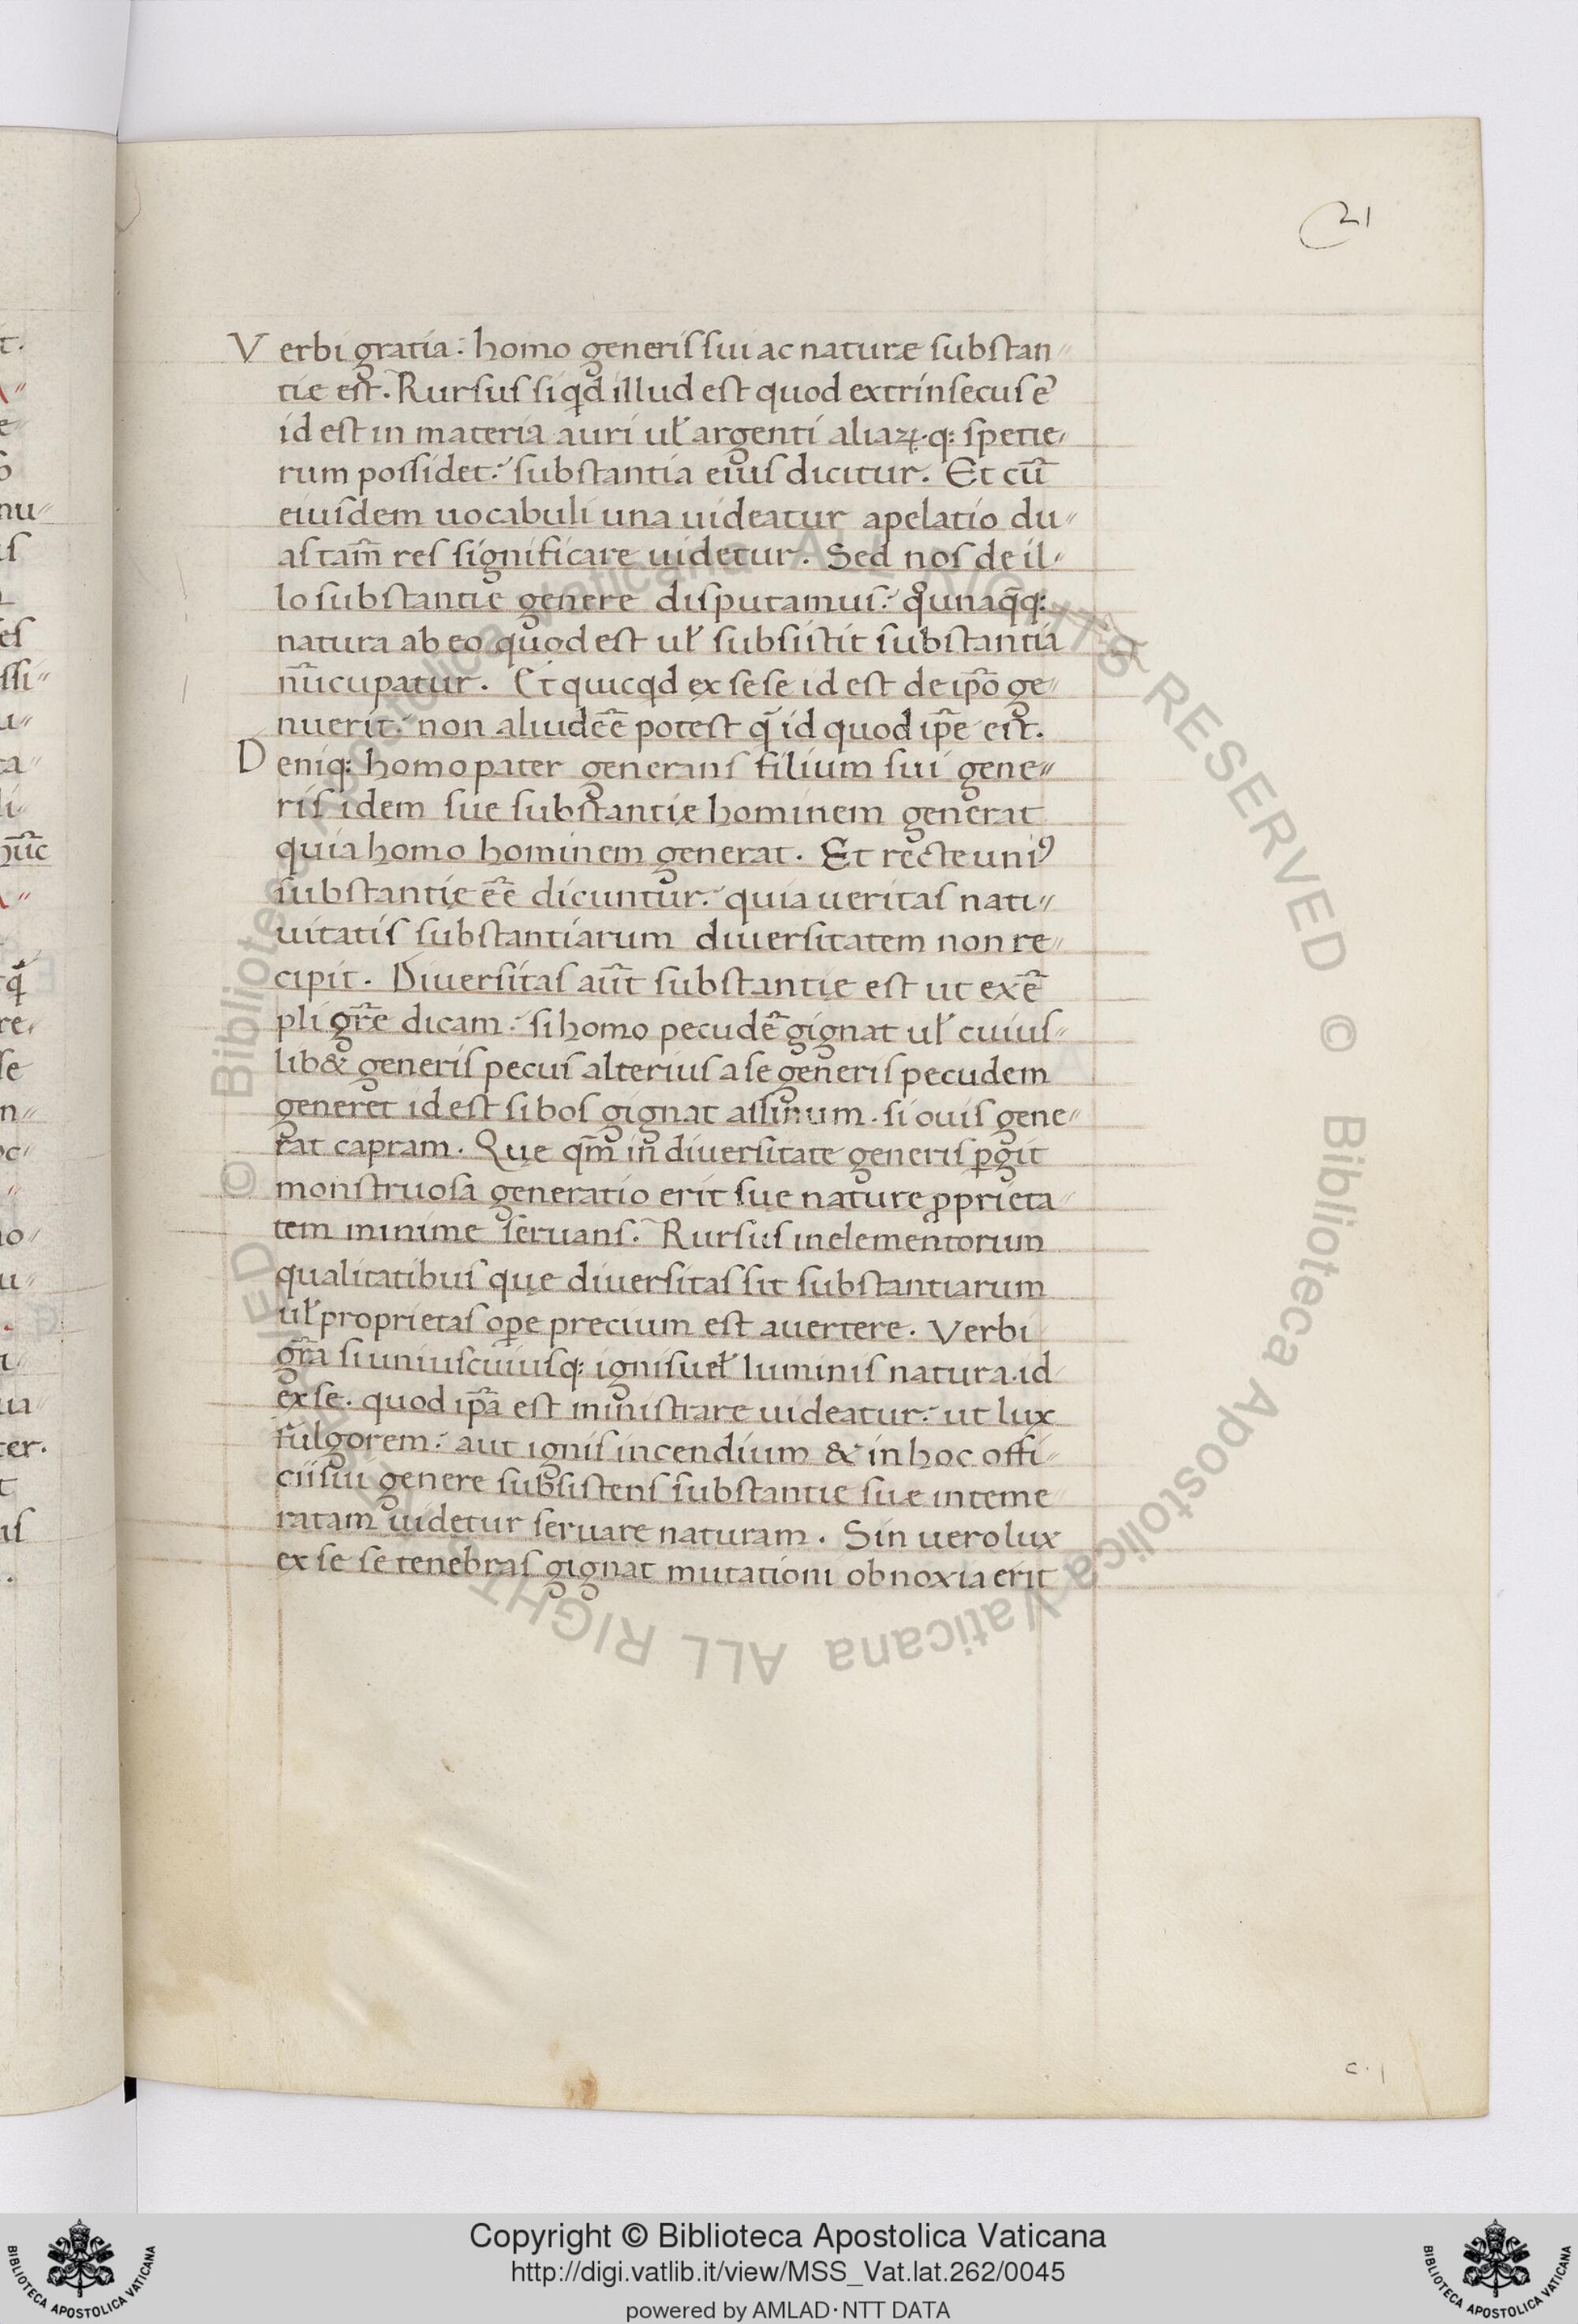 21
Verbi gratia: homo generis sui ac naturæ substan〃
tiæ est. Rursus siq̇d illud est quod extrinsecus ē
id est in materia auri uł argenti aliaꝝ q: spetie,
rum possidet: substantia eius dicitur. Et cū
eiusdem uocabuli una uideatur apelatio du〃
as tam̄ res significare uidetur. Sed nos de il〃
lo substantie genere disputamus: q̊ unaq̄q:
natura ab eo quod est uł subsistit substantia
nūcupatur. Et quicq̇d ex sese id est de ip̄o ge〃
nuerit: non aliud eē̄ potest q̄ id quod ip̄e est.
Deniq: homo pater generans filium sui gene〃
ris idem sue substantię hominem generat
quia homo hominem generat. Et recte uniꝰ
substantię eē̄ dicuntur: quia ueritas nati〃
uitatis substantiarum diuersitatem non re〃
cipit. Diuersitas aut̄ substantię est ut exē
pli gr̄e dicam: si homo pecudē gignat uł cuius〃
lib& generis pecus alterius a se generis pecudem
generet id est si bos gignat assinum. si ouis gene〃
rat capram. Quę qm̄ in diuersitate generis ꝑgit
monstruosa generatio erit suę nature ꝓprieta〃
tem minime seruans. Rursus in elementorum
qualitatibus quę diuersitas sit substantiarum
uł proprietas oꝑe precium est auertere. Verbi
gr̄a si uniuscuiusq: ignis ueł luminis natura. id
ex se. quod ip̄a est ministrare uideatur: ut lux
fulgorem: aut ignis incendium & in hoc offi〃
cii sui genere subsistens substantie suæ inteme
ratam uidetur seruare naturam. Sin uero lux
ex se se tenebras gignat mutationi obnoxia erit
c. 1
© Biblioteca Apostolica Vaticana ALL RIGHTS RESERVED
© Biblioteca Apostolica Vaticana ALL RIGHTS RESERVED
Copyright © Biblioteca Apostolica Vaticana
http://digi.vatlib.it/view/MSS_Vat.lat.262/0045
powered by AMLAD·NTT DATA
BIBLIOTECA APOSTOLICA VATICANA
BIBLIOTECA APOSTOLICA VATICANA